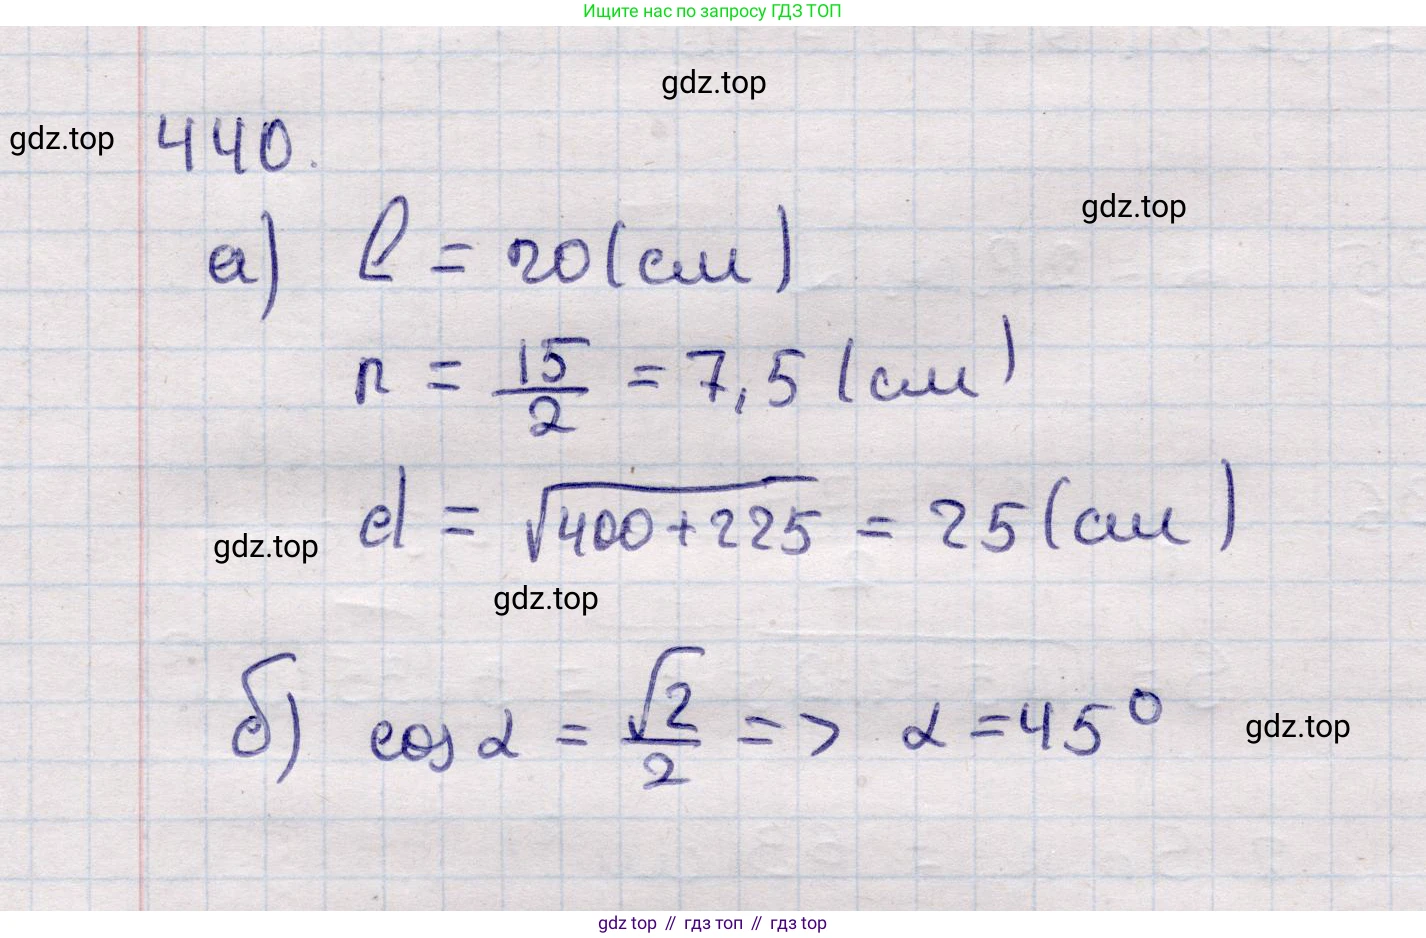 Ищите нас по запросу ГДЗ ТОП
gdz.top
gdz.top
440.
gdz.top
а) l = 20 (см)
r = 15/2 = 7,5 (см)
d = √400+225 = 25 (см)
gdz.top
gdz.top
б) cos α = √2/2 => α = 45°
gdz.top
gdz top // гдз топ // гдз top